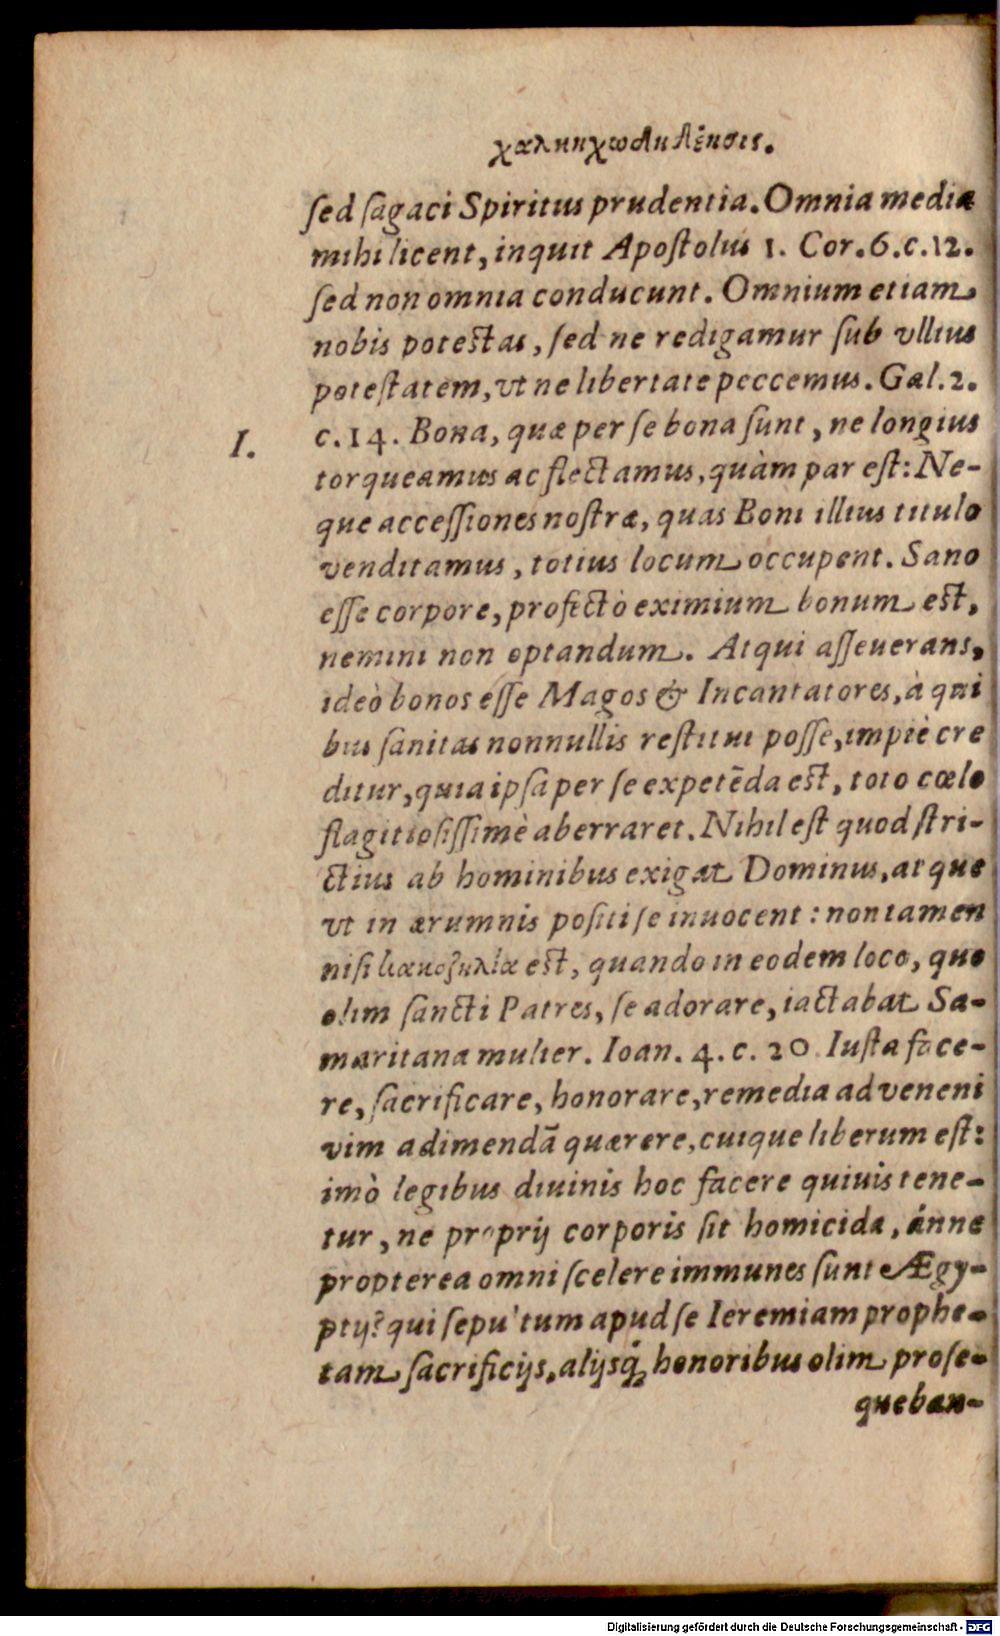 sed sagaci Spiritus prudentia. Omnia mediæ
mihi licent, inquit Apostolus 1. Cor. 6. c. 12.
sed non omnia conducunt. Omnium etiam
nobis potestas, sed ne redigamur sub vllius
potestatem, vt ne libertate peccemus. Gal. 2.
I.
c. 14. Bona, quæ per se bona sunt, ne longius
torqueamus ac flectamus, quàm par est: Ne-
que accessiones nostræ, quas Boni illius titulo
venditamus, totius locum occupent. Sano
esse corpore, profectò eximium bonum est,
nemini non optandum. Atqui asseuerans,
ideò bonos esse Magos & Incantatores, à qui
bus sanitas nonnullis restitui posse, impiè cre
ditur, quia ipsa per se expetēda est, toto cœlo
flagitiosissimè aberraret. Nihil est quod stri-
ctius ab hominibus exigat Dominus, atque
vt in ærumnis positi se inuocent: non tamen
nisi est, quando in eodem loco, quo
olim sancti Patres, se adorare, iactabat Sa-
maritana mulier. Ioan. 4. c. 20. Iusta face-
re, sacrificare, honorare, remedia ad veneni
vim adimendā quærere, cuique liberum est:
imò legibus diuinis hoc facere quiuis tene-
tur, ne proprij corporis sit homicida, ánne
propterea omni scelere immunes sunt Ægy-
ptij? qui sepultum apud se Ieremiam prophe-
tam sacrificijs, alijsq́; honoribus olim prose-
queban-
Digitalisierung gefördert durch die Deutsche Forschungsgemeinschaft - DFG